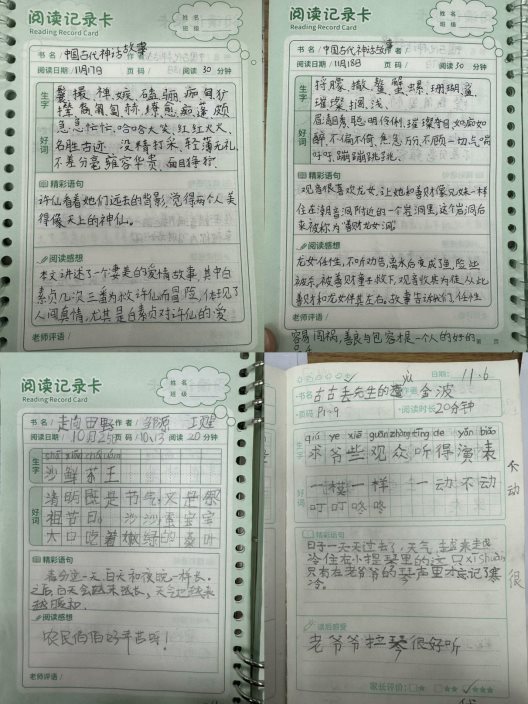 阅读记录卡
Reading Record Card
姓名
班级
书名 / 中国古代神话故事
阅读日期 / 11月17日 页码 / 阅读 30 分钟
生字
好词
急急忙忙、哈哈大笑、红红火火、
名胜古迹、没精打采、轻薄无礼、
不差分毫、雍容华贵、面目狰狞
精彩语句
许仙看着她们远去的背影,觉得两个人美
得像天上的神仙。
阅读感想
本文讲述了一个凄美的爱情故事,其中白
素贞几次三番为救许仙而冒险,体现了
人间真情,尤其是白素贞对许仙的爱
老师评语 /
阅读记录卡
Reading Record Card
姓名
班级
书名 / 中国古代神话故事
阅读日期 / 11月18日 页码 / 阅读 30 分钟
生字
好词
璀璨、搁、浅、
眉清目秀、聪明伶俐、璀璨夺目、如痴如
醉、不偏不倚、焦急万分、不顾一切、气
呼呼、蹦蹦跳跳、
精彩语句
观音很喜欢龙女,让她和善财像兄妹一样
住在潮音洞附近的一个岩洞里,这个岩洞后
来被称为“善财龙女洞”
阅读感想
龙女任性,不听劝告,
被杀。被善财童子救下,观音收其为徒,从此
善财和龙女伴其左右。故事告诉我们,任性
老师评语 /
容易闯祸,善良与包容才是一个人的好的
阅读记录卡
Reading Record Card
姓名
班级
书名 / 走向田野 作者 /
阅读日期 / 10月25日 页码 / 10,13 阅读 20 分钟
生字
沙鲜茶王
好词
清明既是节气,又是祭
祖节日。沙沙 蚕宝宝
大口吃着嫩绿的桑叶
精彩语句
春分这一天,白天和夜晚一样长。
之后,白天会越来越长,天气也越来
越暖和.
阅读感想
农民伯伯好辛苦呀!
老师评语 /
日期: 11.6
书名 古古丢先生的 金波
页码 P1-9 阅读时长 20分钟
生字
qiú yé xiē guān zhòng tīng de yǎn biǎo
求爷些观众听得演表
好词
一模一样 一动不动
叮叮咚咚
精彩语句
日子一天天过去了,天气越来越
冷住在小提琴里的这只xī shuài
只有在老爷爷的琴声里才忘记了寒
冷。
读后感受
老爷爷拉琴很好听
家长评价:
很